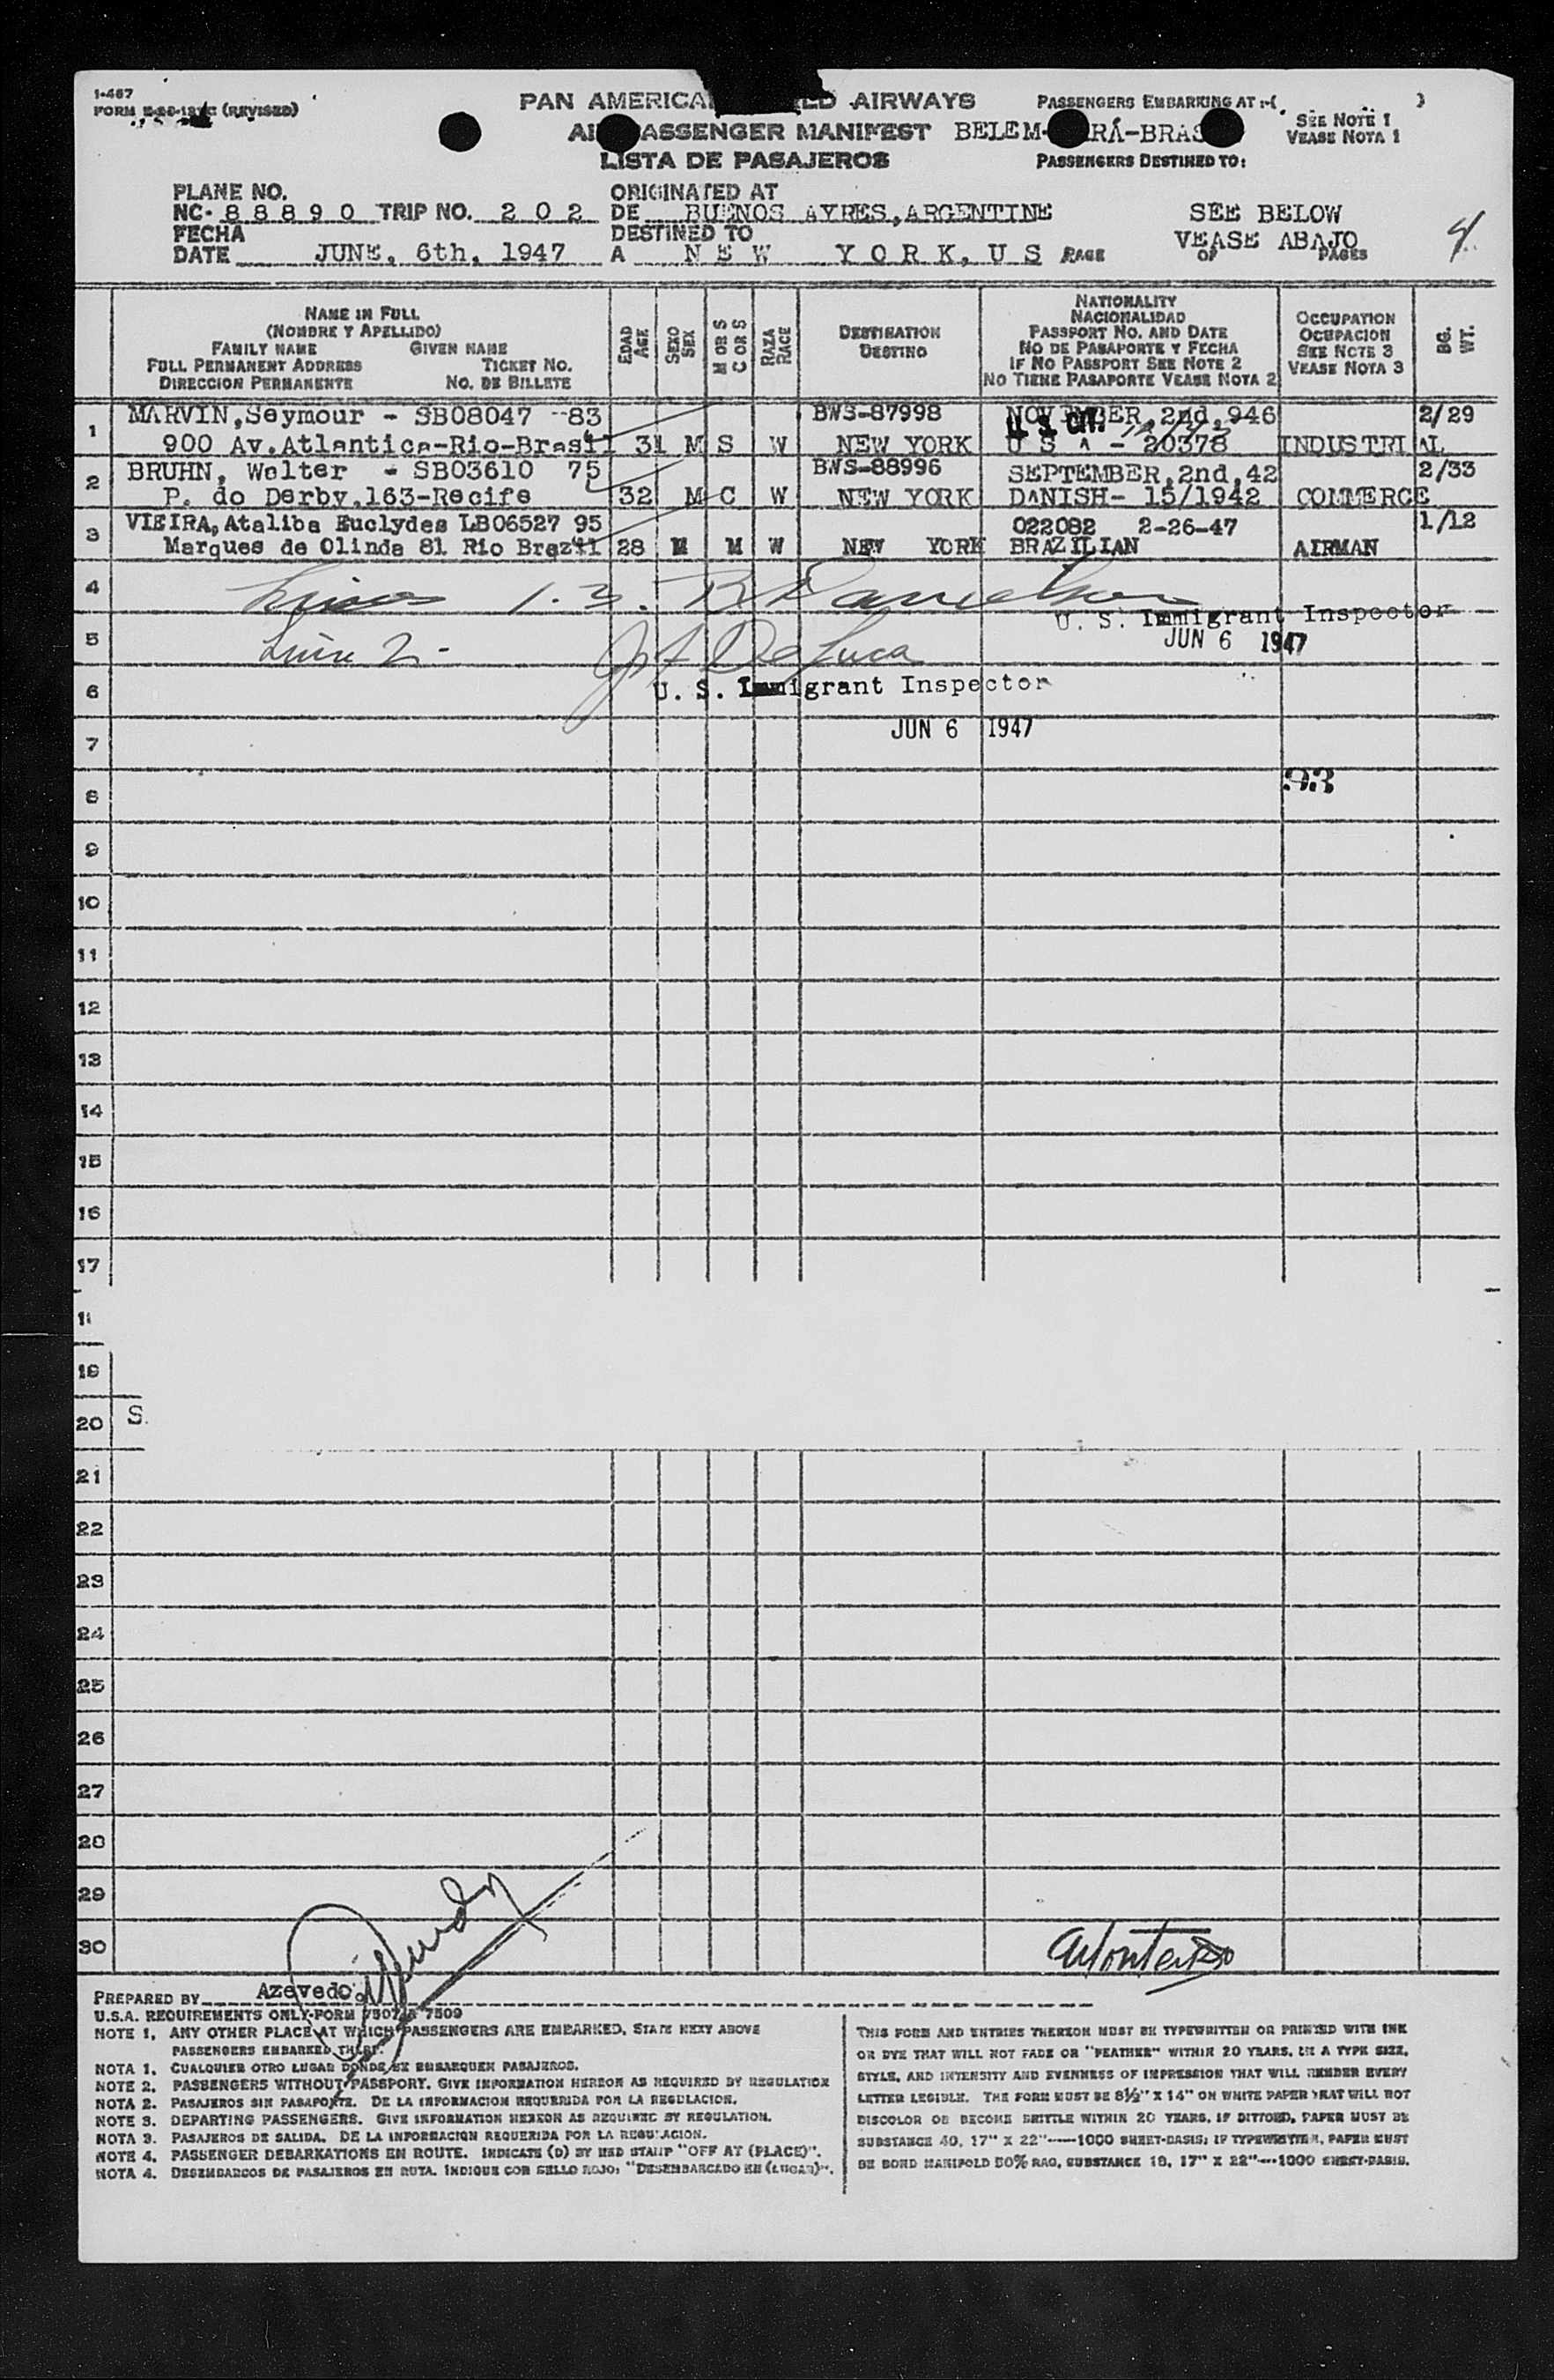 1-467
FORM (REVISED)
PAN AMERICAN AIRWAYS
PASSENGERS EMBARKING AT :-( )
SEE NOTE 1
VEASE NOTA 1
PASSENGER MANIFEST BELEM-
LISTA DE PASAJEROS
PASSENGERS DESTINED TO:
PLANE NO.
NC- 88890 TRIP NO. 202
ORIGINATED AT
DE BUENOS AYRES, ARGENTINE
SEE BELOW
FECHA
DATE JUNE, 6th, 1947
DESTINED TO
A NEW YORK, US PAGE
VEASE ABAJO
OF PAGES
4
NAME IN FULL
(NOMBRE Y APELLIDO)
FAMILY NAME GIVEN NAME
FULL PERMANENT ADDRESS TICKET NO.
DIRECCION PERMANENTE NO. DE BILLETE
EDAD
AGE
SEXO
SEX
M OR S
C OR S
RAZA
RACE
DESTINATION
DESTINO
NATIONALITY
NACIONALIDAD
PASSPORT NO. AND DATE
NO DE PASAPORTE Y FECHA
IF NO PASSPORT SEE NOTE 2
NO TIENE PASAPORTE VEASE NOTA 2
OCCUPATION
OCUPACION
SEE NOTE 3
VEASE NOTA 3
BG.
WT.
MARVIN, Seymour - SB08047 83 BWS-87998 NOVEMBER, 2nd, 946 2/29
U S Cit.
1 900 Av. Atlantica-Rio-Brasil 31 M S W NEW YORK U S A - 20378 INDUSTRIAL
BRUHN, Walter - SB03610 75 BWS-88996 SEPTEMBER, 2nd, 42 2/33
2 P. do Derby, 163-Recife 32 M C W NEW YORK DANISH- 15/1942 COMMERCE
VIEIRA, Ataliba Euclydes LB06527 95 022082 2-26-47 1/12
3 Marques de Olinda 81 Rio Brazil 28 M M W NEW YORK BRAZILIAN AIRMAN
4 Lines 1. 3. R Danielson
U. S. Immigrant Inspector
JUN 6 1947
5 Line 2- DeLuca
6 U. S. Immigrant Inspector
JUN 6 1947
7
93
8
9
10
11
12
13
14
15
16
17
19
20 S.
21
22
23
24
25
26
27
28
29
30
PREPARED BY Azevedo
U.S.A. REQUIREMENTS ONLY-FORM 7507 7509
NOTE 1. ANY OTHER PLACE AT WHICH PASSENGERS ARE EMBARKED, STATE NEXT ABOVE
PASSENGERS EMBARKED THERE.
NOTA 1. CUALQUIER OTRO LUGAR DONDE SE EMBARQUEN PASAJEROS.
NOTE 2. PASSENGERS WITHOUT PASSPORT. GIVE INFORMATION HEREON AS REQUIRED BY REGULATION
NOTA 2. PASAJEROS SIN PASAPORTE. DE LA INFORMACION REQUERIDA POR LA REGULACION.
NOTE 3. DEPARTING PASSENGERS. GIVE INFORMATION HEREON AS REQUIRED BY REGULATION.
NOTA 3. PASAJEROS DE SALIDA. DE LA INFORMACION REQUERIDA POR LA REGULACION.
NOTE 4. PASSENGER DEBARKATIONS EN ROUTE. INDICATE (D) BY RED STAMP "OFF AT (PLACE)".
NOTA 4. DESEMBARCOS DE PASAJEROS EN RUTA. INDIQUE CON SELLO ROJO: "DESEMBARCADO EN (LUGAR)".
THIS FORM AND ENTRIES THEREON MUST BE TYPEWRITTEN OR PRINTED WITH INK
OR DYE THAT WILL NOT FADE OR "FEATHER" WITHIN 20 YEARS. IN A TYPE SIZE,
STYLE, AND INTENSITY AND EVENNESS OF IMPRESSION THAT WILL RENDER EVERY
LETTER LEGIBLE. THE FORM MUST BE 8½" X 14" ON WHITE PAPER THAT WILL NOT
DISCOLOR OR BECOME BRITTLE WITHIN 20 YEARS. IF DITTOED, PAPER MUST BE
SUBSTANCE 40, 17" X 22"-----1000 SHEET-BASIS; IF TYPEWRITTEN, PAPER MUST
BE BOND MANIFOLD 50% RAG, SUBSTANCE 18, 17" X 22"----1000 SHEET-BASIS.